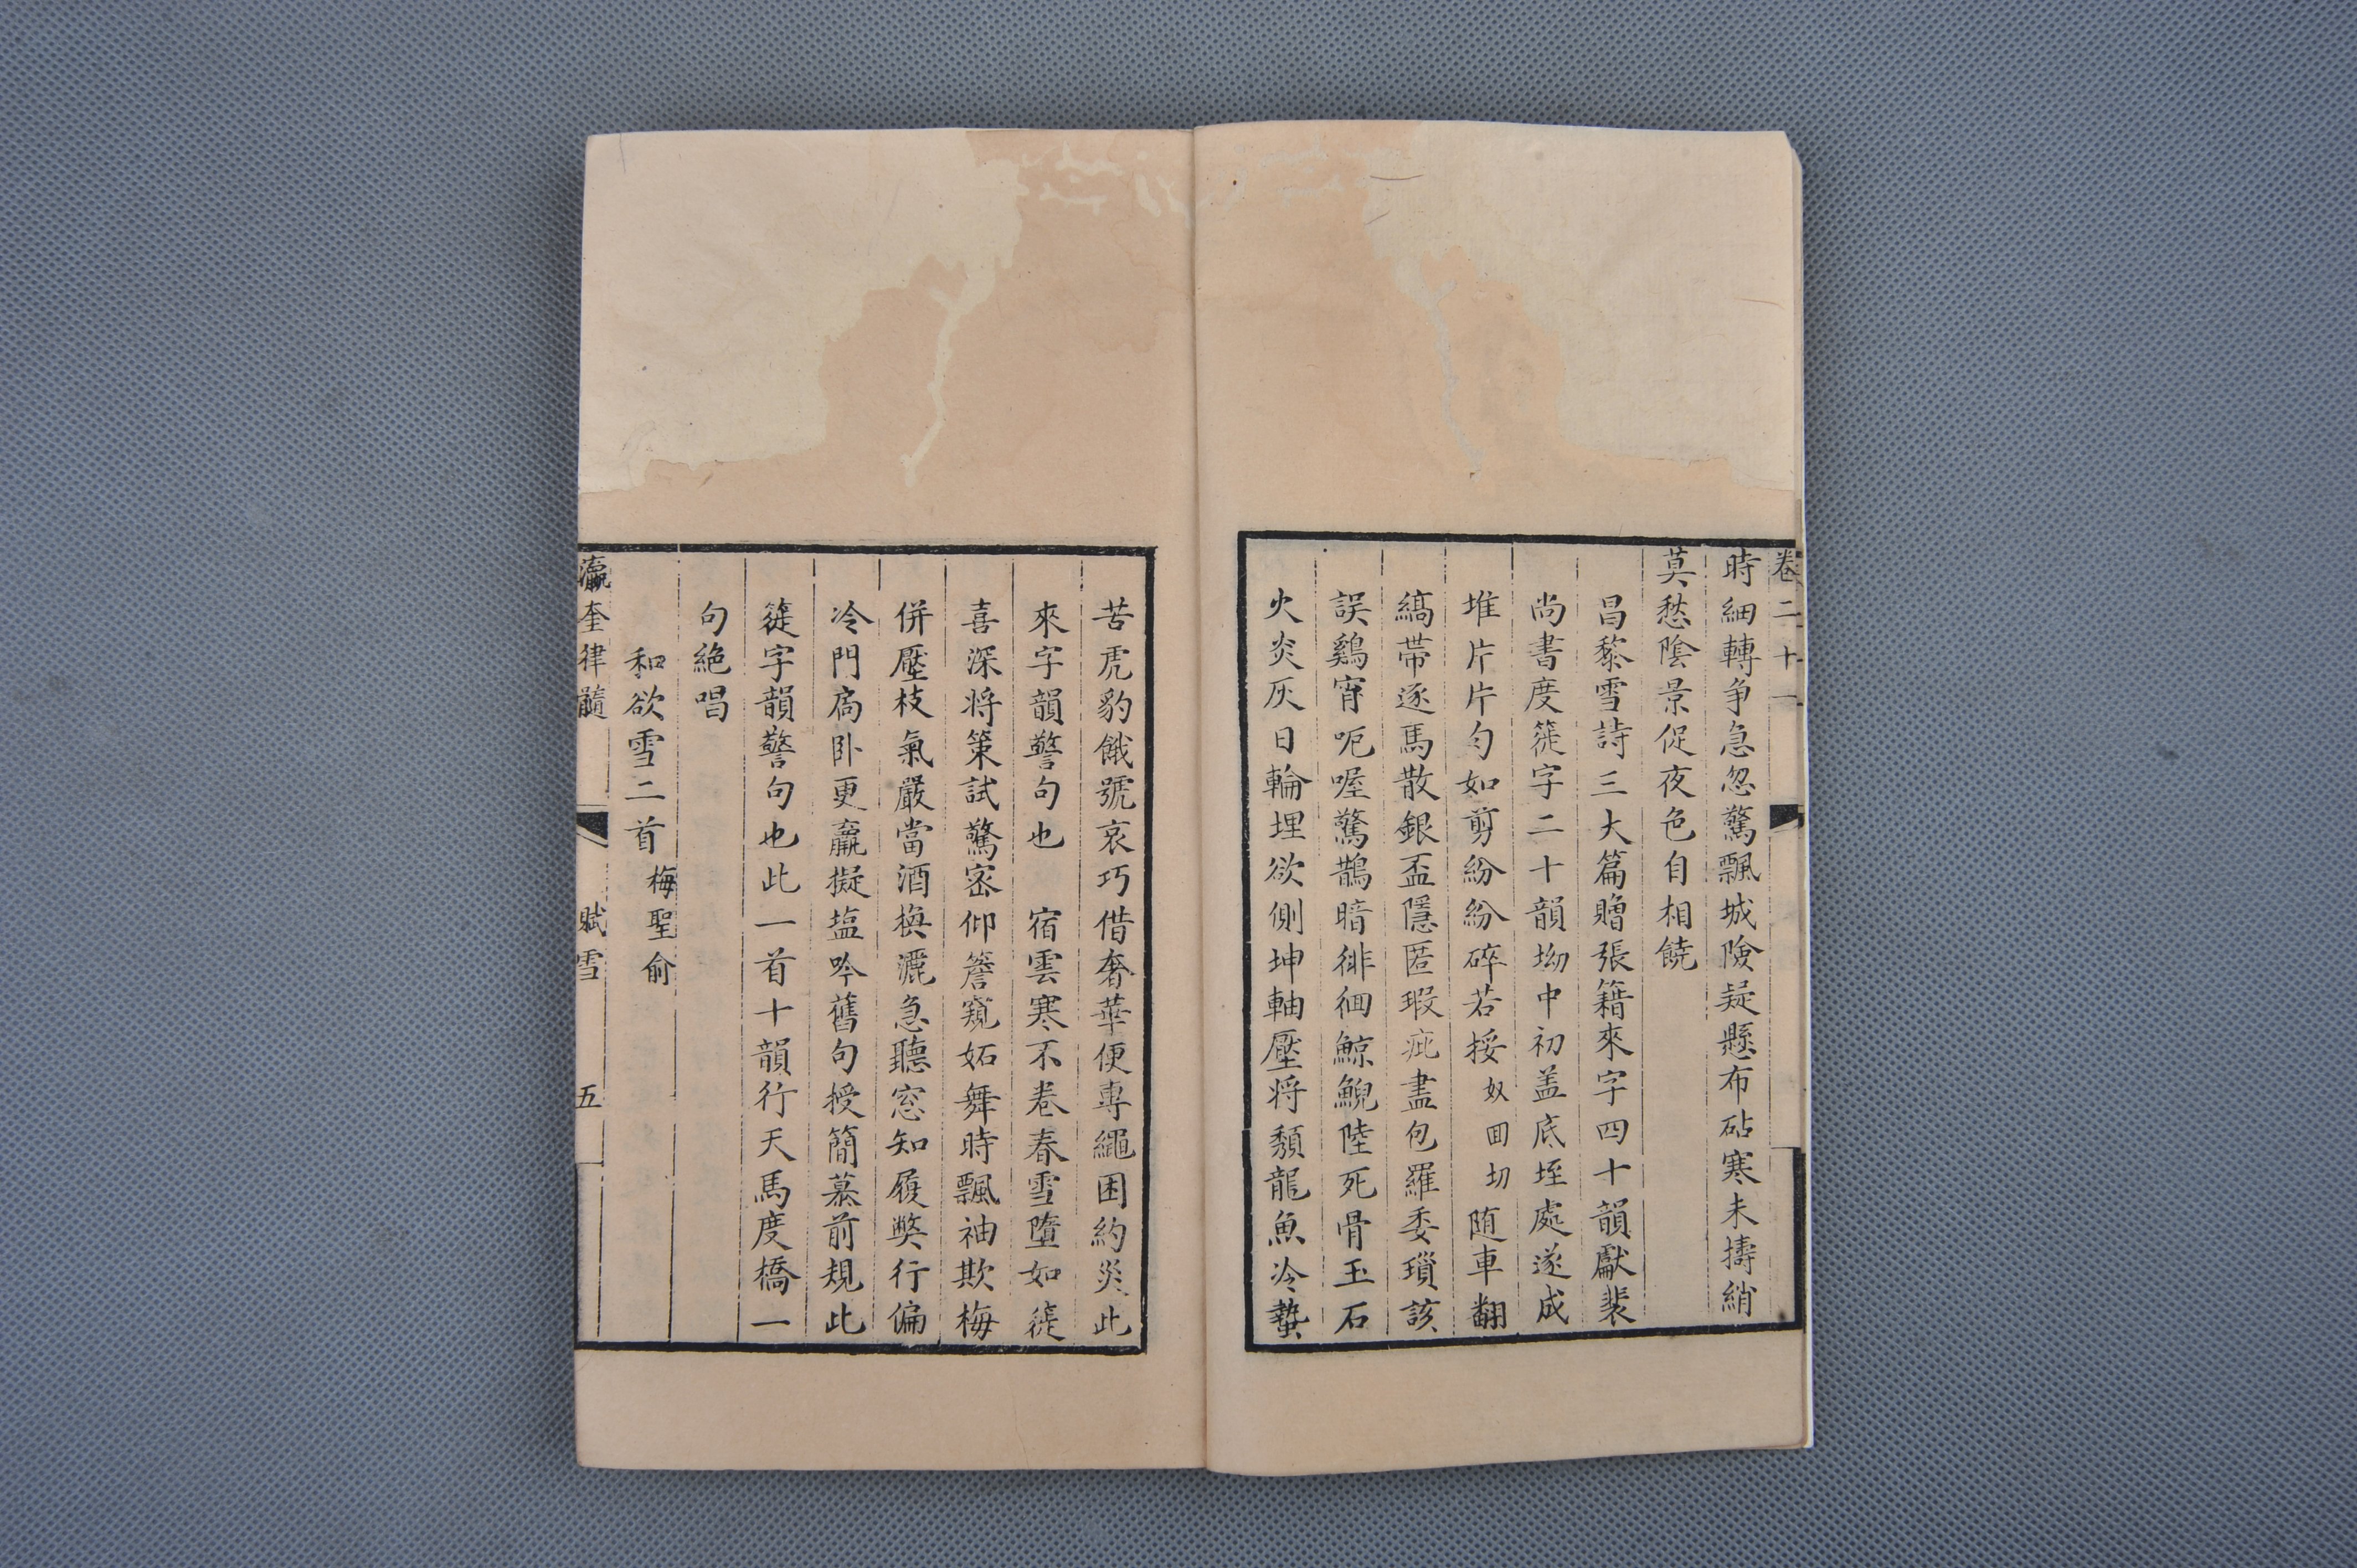 卷二十一
時細轉争急忽驚飄城險疑懸布砧寒未擣綃
莫愁陰景促夜色自相饒
昌黎雪詩三大篇贈張籍來字四十韻獻裴
尚書度簁字二十韻坳中初盖底垤處遂成
堆片片勻如剪紛紛碎若挼奴回切随車翻
縞帶逐馬散銀盃隱匿瑕疵盡包羅委瑣該
誤鷄宵呃喔驚鵲暗徘徊鯨鯢陸死骨玉石
火炎灰日輪埋欲側坤軸壓将頽龍魚冷蟄
苦虎豹餓號哀巧借奢華便專繩困約災此
來字韻警句也 宿雲寒不卷春雪墮如簁
喜深将策試驚密仰簷窺妬舞時飄袖欺梅
併壓枝氣嚴當酒換灑急聽窓知履獘行偏
冷門扃卧更羸擬塩吟舊句授簡慕前規此
簁字韻警句也此一首十韻行天馬度橋一
句絶唱
和欲雪二首 梅聖俞
瀛奎律髓 賦雪 五